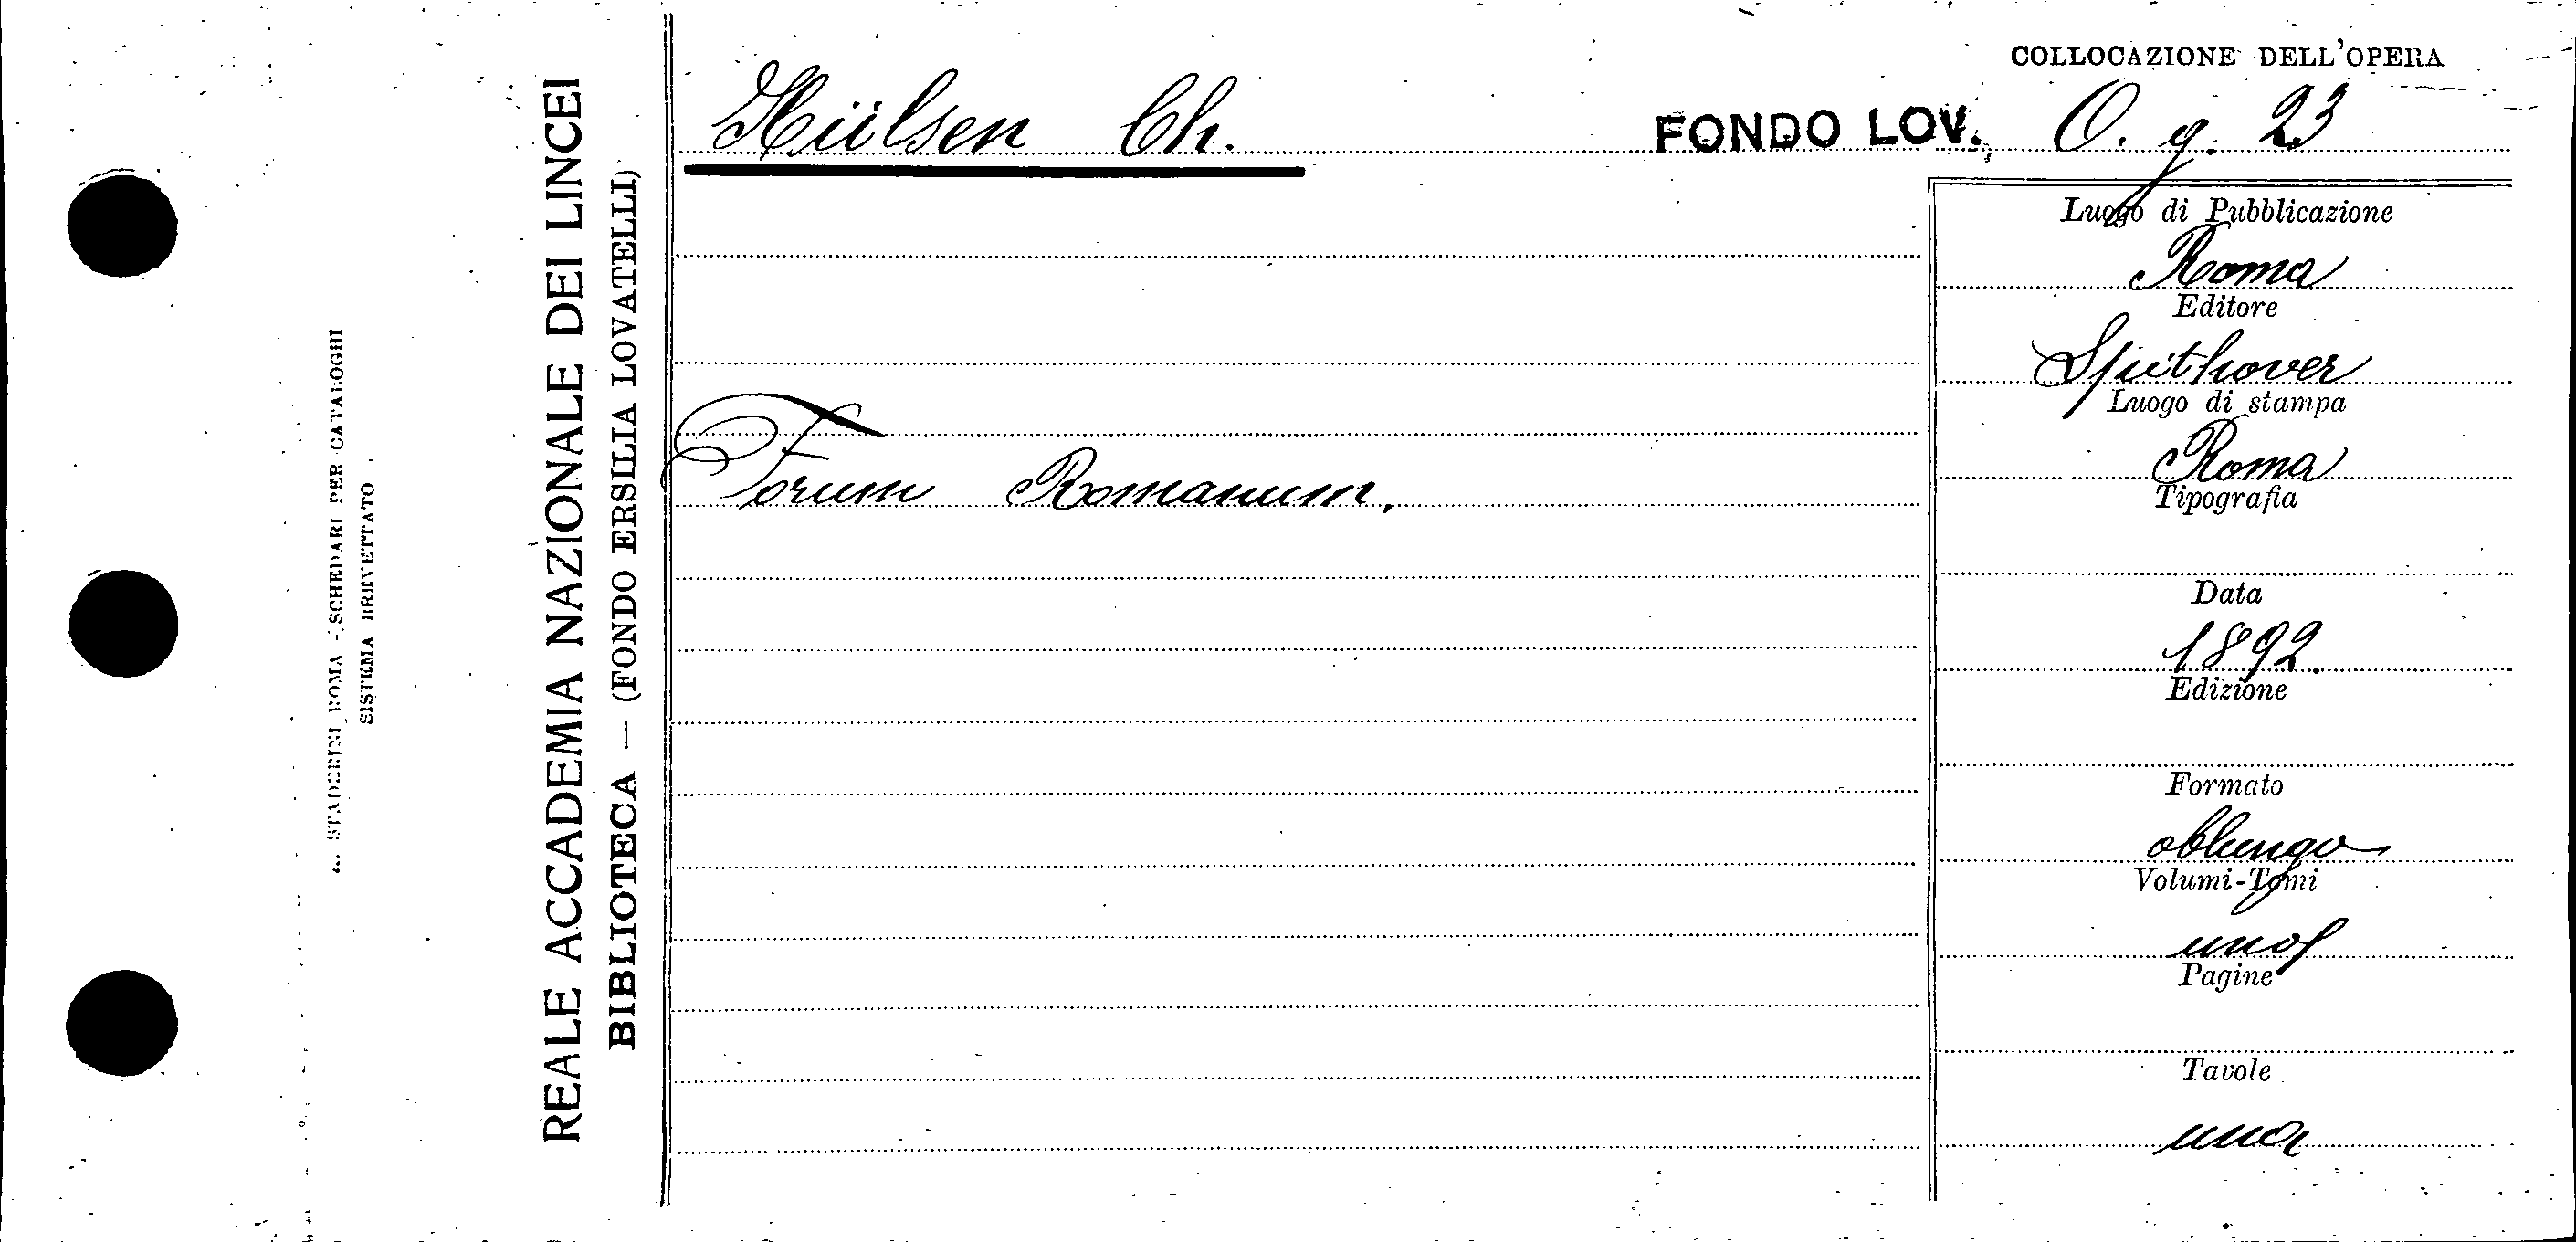 COLLOCAZIONE DELL'OPERA
Hülsen Ch.
FONDO LOV. O. g. 23
REALE ACCADEMIA NAZIONALE DEI LINCEI
BIBLIOTECA — (FONDO ERSILIA LOVATELLI)
STADERINI ROMA - SCHEDARI PER CATALOGHI
SISTEMA BREVETTATO
Forum Romanum,
Luogo di Pubblicazione
Roma
Editore
Spithover
Luogo di stampa
Roma
Tipografia
Data
1892.
Edizione
Formato
oblungo
Volumi-Tomi
uno
Pagine
Tavole
una